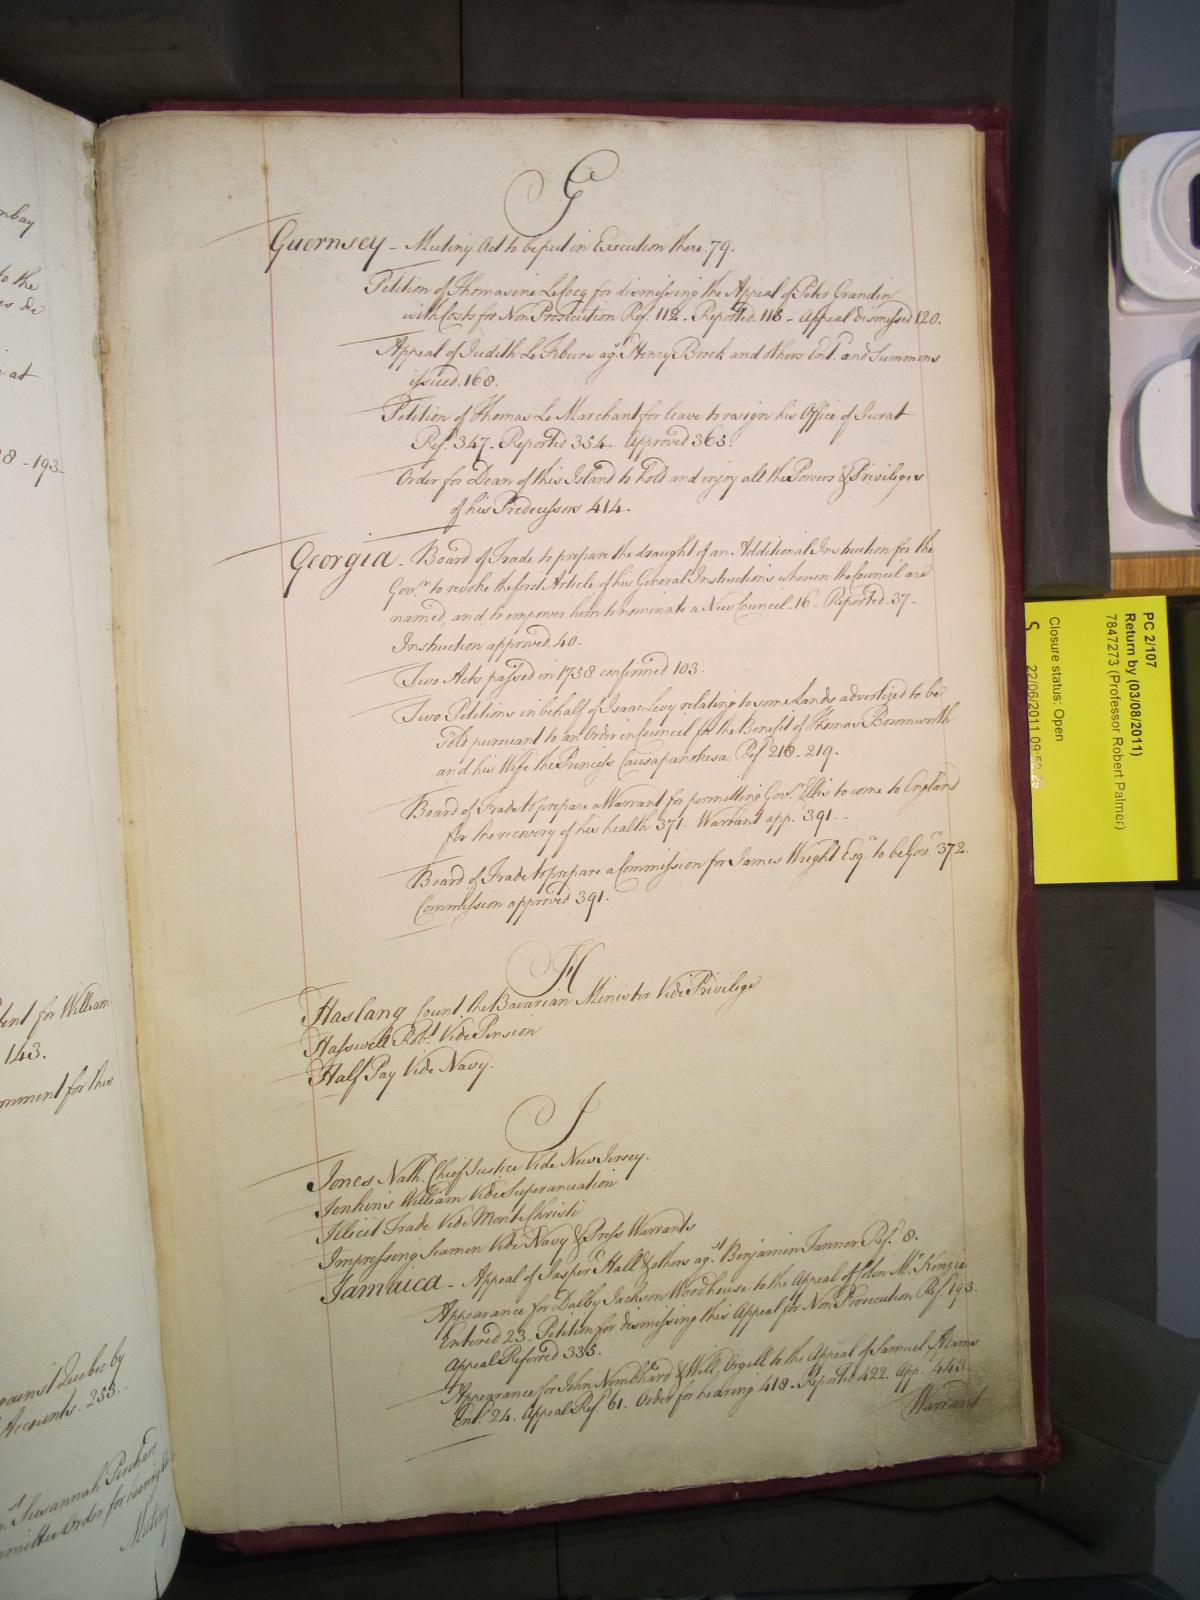 mbay
to the
es de
at
8 - 193-
tent for William
143.
mment for this
against Quebec by
Accounts. 255.
st Susannah Perchard
mittee Order for hearing
Mutiny
G
Guernsey - Mutiny Act to be put in Execution there. 79.
Petition of Thomasine Lefocq for dismissing the Appeal of Peter Grandin
with Costs for Non Prosecution Ref. 112. Reported. 116 - Appeal dismissed 120.
Appeal of Judith Le Febure agt. Henry Brock and others Ent. and Summons
issued. 168.
Petition of Thomas Le Marchant for leave to resign his Office of Jurat
Ref. 347. Reported 354. Approved 365.
Order for Dean of this Island to hold and enjoy all the Powers & Privileges
of his Predecessors 414.
Georgia - Board of Trade to prepare the draught of an Additional Instruction for the
Govr. to revoke the first Article of his General Instructions wherein the Council are
named, and to empower him to nominate a New Council. 16 - Reported. 37 -
Instruction approved. 40.
Two Acts passed in 1758 confirmed 103.
Two Petitions in behalf of Isaac Levy relating to some Lands advertized to be
sold pursuant to an Order in Council for the Benefit of Thomas Bosomworth
and his Wife the Princess Causaponkesa. Ref. 218. 219.
Board of Trade to prepare a Warrant for permitting Govr. Ellis to come to England
for the recovery of his health 371. Warrant app. 391. -
Board of Trade to prepare a Commission for James Wright Esqr. to be Govr. 372.
Commission approved 391.
H
Haslang Count, the Bavarian Minister Vide Privilege
Hasswell Robt. Vide Pension
Half Pay Vide Navy.
J
Jones Nath. Chief Justice Vide New Jersey.
Jenkins William Vide Superanuation
Illicit Trade Vide Monte Christi
Impressing Seamen Vide Navy & Press Warrants
Jamaica - Appeal of Jasper Hall & others agst. Benjamin Tanner Ref. 8.
Appearance for Dalby Jackson Woodhouse to the Appeal of Colin McKenzie
Entered 23. Petition for dismissing this Appeal for Non Prosecution Ref. 193.
Appeal Referred 335.
Appearance for John Nembhard & Will. Orgill to the Appeal of Samuel Adams
Ent. 24. Appeal Ref. 61. Order for hearing 418 - Reported 422. App. 443.
Warrant
PC 2/107
Return by (03/08/2011)
7847273 (Professor Robert Palmer)
Closure status: Open
S